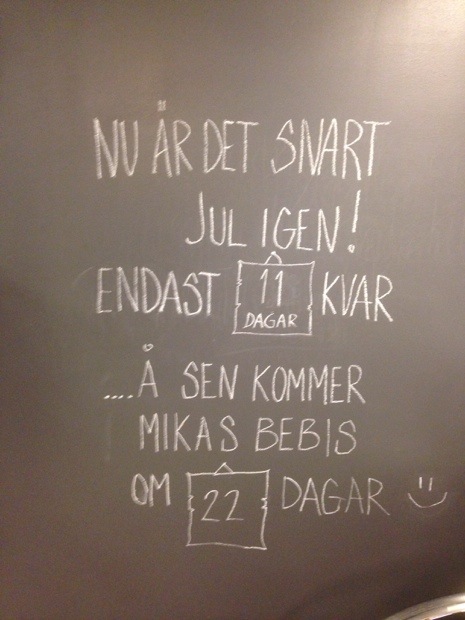 NU ÄR DET SNART
JUL IGEN!
ENDAST 11 DAGAR KVAR
....Å SEN KOMMER
MIKAS BEBIS
OM 22 DAGAR